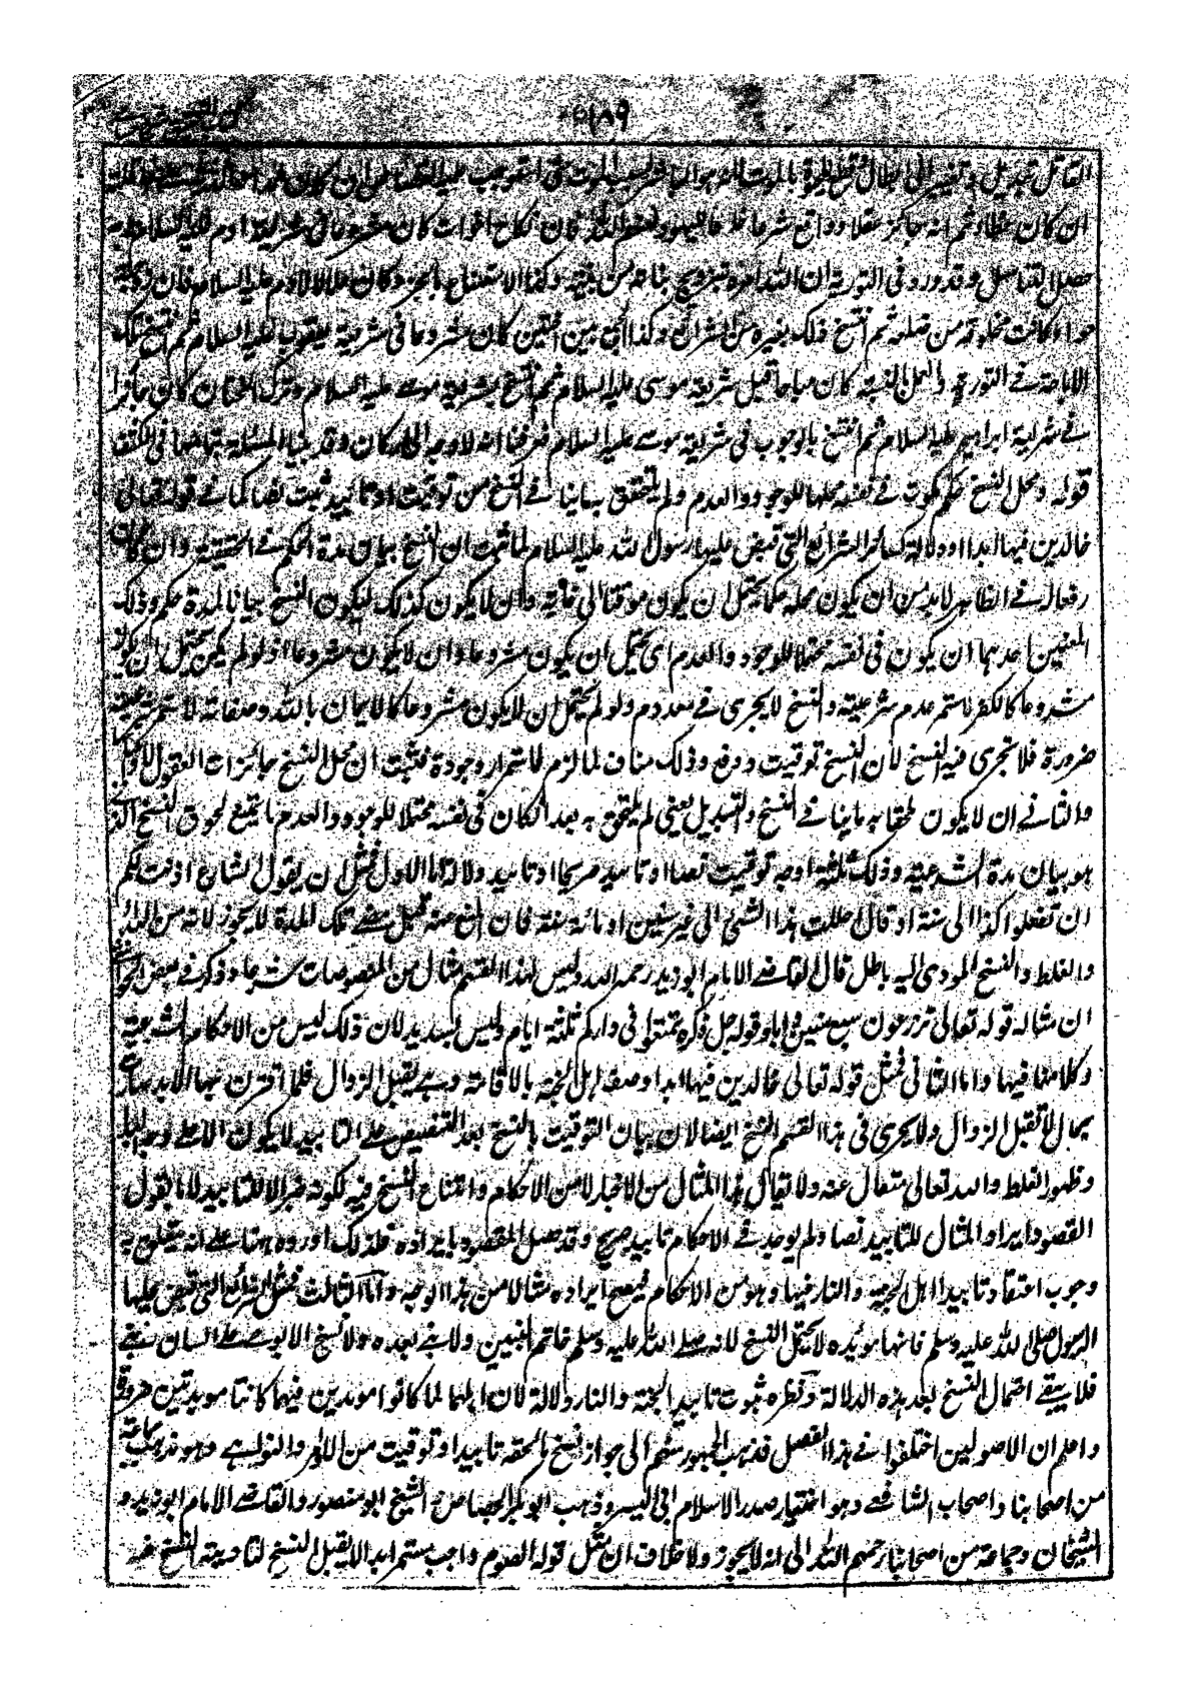 ١٨٩
القاتل تبديل وتغيير الى ابطال قطع الحيوة بالموت لانه هو المباشر لسبب الموت حتى استوجب عليه القصاص
ان كان خطاء ثم انه جائز عقلا وواقع شرعا خلافا لليهود لعنهم الله فان نكاح الاخوات كان مشروعا فى شريعة ادم عليه السلام وبه
حصل التناسل وقد ورد فى التورية ان الله امره بتزويج بناته من بنيه وكذا الاستمتاع بالجزء كان حلالا لادم عليه السلام فان زوجته
حواء كانت مخلوقة من ضلعه ثم انتسخ ذلك بغيره من الشرائع وكذا الجمع بين الاختين كان مشروعا فى شريعة يعقوب عليه السلام ثم انتسخ تلك
الاباحة فى التورية والعمل فى السبت كان مباحا قبل شريعة موسى عليه السلام ثم انتسخ بشريعة موسى عليه السلام وترك الختان كان جائزا
فى شريعة ابراهيم عليه السلام ثم انتسخ بالوجوب فى شريعة موسى عليه السلام فعرفنا انه لا وجه الى الانكار وقد بينا المسئلة بتمامها فى الكشف
قوله ومحل النسخ حكم يكون فى نفسه محتملا للوجود والعدم ولم يلتحق به ما ينافى النسخ من توقيت او تابيد ثبت نصا كما فى قوله تعالى
خالدين فيها ابدا او دلالة كسائر الشرائع التى قبض عليها رسول الله عليه السلام لما ثبت ان النسخ بيان مدة الحكم فى الحقيقة وان كان
رفعا له فى الظاهر لا بد من ان يكون محله حكما يحتمل ان يكون موقتا الى غاية وان لا يكون كذلك ليكون النسخ بيانا لمدة حكمه وذلك
المعنيين احدهما ان يكون فى نفسه محتملا للوجود والعدم اى يحتمل ان يكون مشروعا وان لا يكون مشروعا اذ لو لم يكن يحتمل ان يكون
مشروعا كالكفر استمر عدم شرعيته والنسخ لا يجرى فى معدوم ولو لم يحتمل ان لا يكون مشروعا كالايمان بالله وصفاته لاستمر شرعيته
ضرورة فلا تجرى فيه النسخ لان النسخ توقيت ورفع وذلك مناف لما لزم استمرار وجوده فثبت ان محل النسخ جائزات العقول
والثانى ان لا يكون ملحقا به ما ينافى النسخ والتبديل يعنى لم يلتحق به بعد ان كان فى نفسه محتملا للوجود والعدم ما يمنع لحوق النسخ الذى
هو بيان مدة الشرعية وذلك ثلثة اوجه توقيت نصا او تابيد صريحا او تابيد دلالة اما الاول فمثل ان يقول الشارع اذنت لكم
ان تفعلوا كذا الى سنة او قال احللت هذا الشىء الى عشر سنين او مائة سنة فان النهى عنه قبل مضى تلك المدة لا يجوز لانه من البداء
والغلط والنسخ المودى اليه باطل قال القاضى الامام ابو زيد رحمه الله وليس لهذا القسم مثال من المنصوصات شرعا وذكر فى بعض
ان مثاله قوله تعالى تزرعون سبع سنين دابا وقوله جل ذكره تمتعوا فى داركم ثلثة ايام وليس بسديد لان ذلك ليس من الاحكام الشرعية
وكلامنا فيها واما الثانى فمثل قوله تعالى خالدين فيها ابدا وصف اهل الجنة بالاقامة وهى يقبل الزوال فلما اقترن بها الابد صارت
بحال لا تقبل الزوال ولا يجرى فى هذا القسم النسخ ايضا لان بيان التوقيت بالنسخ بعد التنصيص على التابيد لا يكون الا على وجه البداء
وظهور الغلط والله تعالى متعال عنه ولا يقال هذا المثال من الاخبار لا من الاحكام وامتناع النسخ فيه لكونه خبرا لا للتابيد لانا نقول
القصود ايراد المثال للتابيد نصا ولم يوجد فى الاحكام تابيد صريح وقد حصل المقصود بايراده فلذلك اورده هنا على انه متعلق به
وجوب اعتقاد تابيد اهل الجنة والنار فيها وهو من الاحكام فيصح ايراده مثالا من هذا الوجه واما الثالث فمثل الشرائع التى قبض عليها
الرسول صلى الله عليه وسلم فانها مؤبده لا يحتمل النسخ لانه صلى الله عليه وسلم خاتم النبيين ولا نبى بعده ولا نسخ الا بوحى على لسان نبى
فلا يبقى احتمال النسخ بعد هذه الدلالة ونظيره ثبوت تابيد الجنة والنار دلالة لان اهلهما لما كانوا مؤبدين فيهما كانتا مؤبدتين ضرورة
واعلم ان الاصوليين اختلفوا فى هذا الفصل فذهب الجمهور منهم الى جواز نسخ ما لحقه تابيد او توقيت من الاوامر والنواهى وهو مذهب جماعة
من اصحابنا واصحاب الشافعى وهو اختيار صدر الاسلام ابى اليسر وذهب ابو بكر الجصاص والشيخ ابو منصور والقاضى الامام ابو زيد و
الشيخان وجماعة من اصحابنا رحمهم الله الى انه لا يجوز ولا خلاف ان مثل قوله الصوم واجب مستمر ابدا لا يقبل النسخ لتاديه النسخ فيه